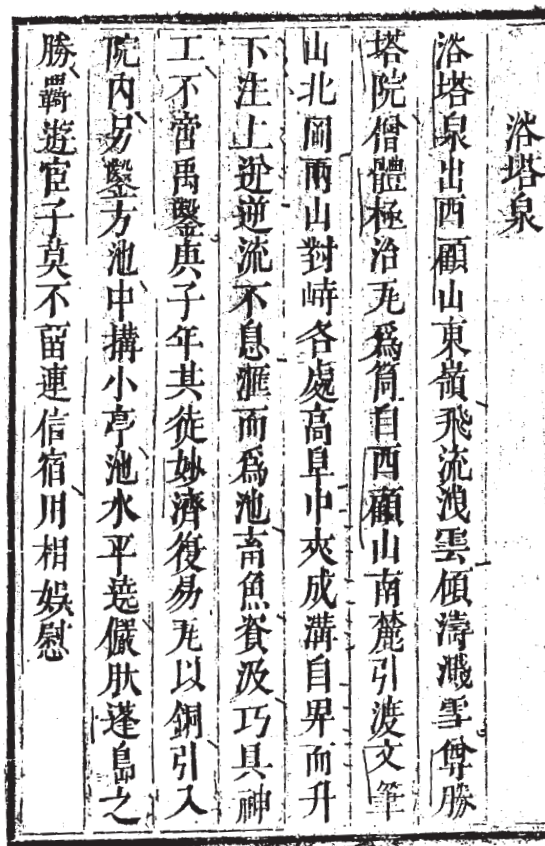 浴塔泉
浴塔泉出西顧山東嶺飛流洩雲傾濤濺雪尊勝
塔院僧體極治瓦爲筒自西顧山南麓引渡文筆
山北岡兩山對峙各處高阜中夾成溝自畀而升
下注上迸逆流不息滙而爲池畜魚資汲巧具神
工不啻禹鑿庚子年其徒妙濟復易瓦以銅引入
院內另鑿方池中搆小亭池水平遶儼肰蓬島之
勝羇遊宦子莫不畱連信宿用相娛慰